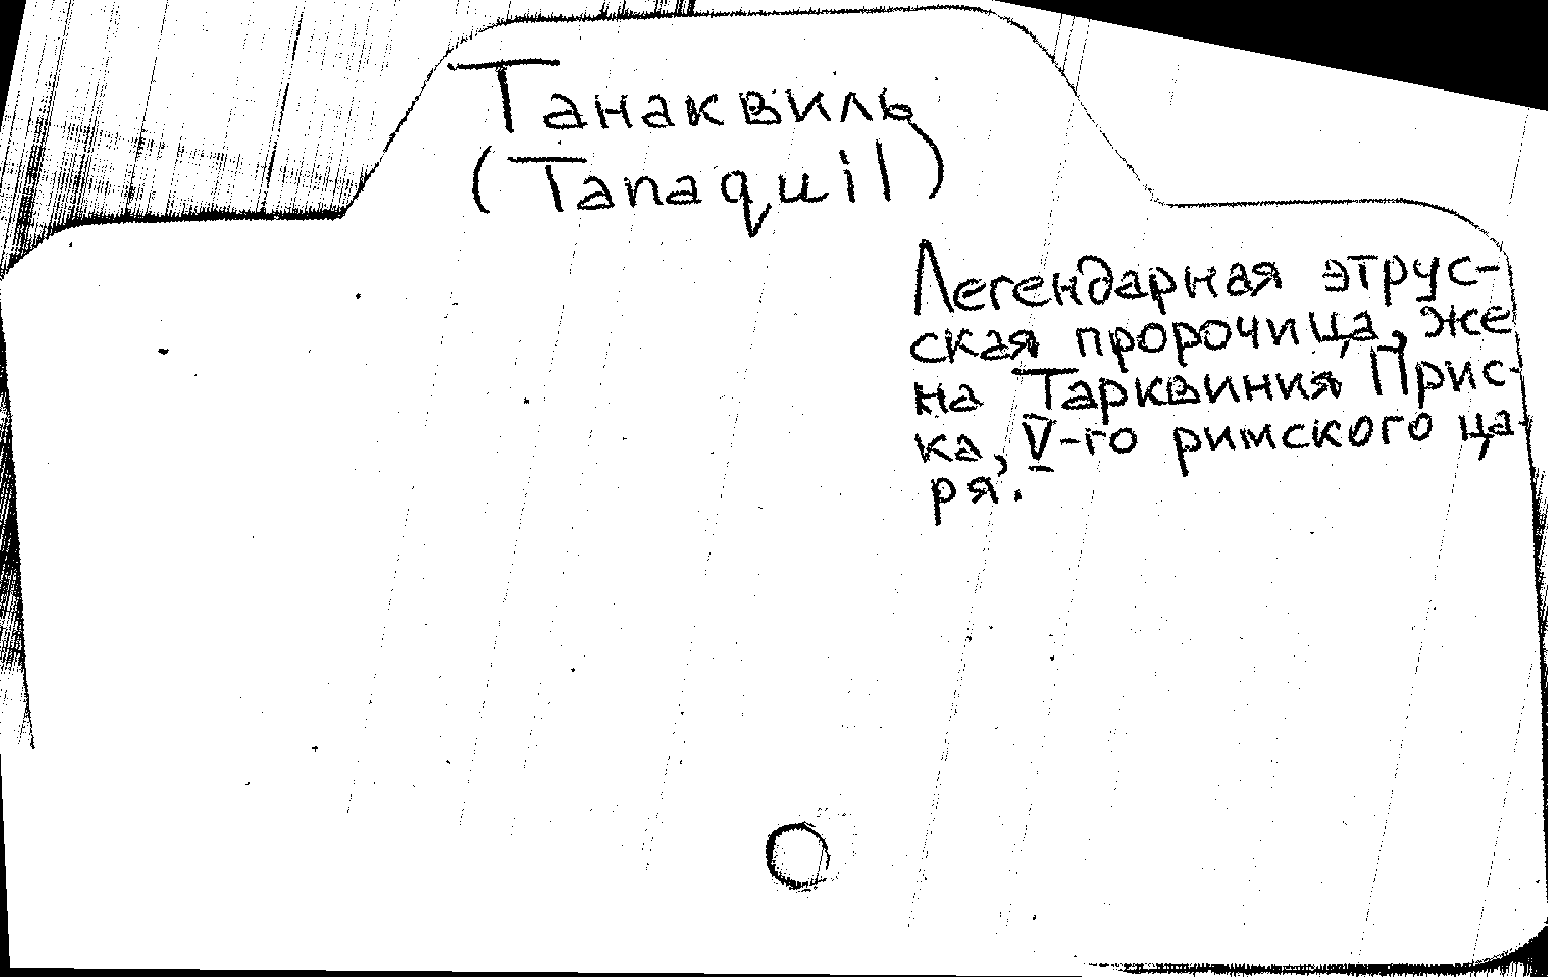 Танаквиль
(Tanaquil)
Легендарная этрус-
ская пророчица, же
на Тарквиния Прис-
ка, V-го римского ца-
ря.